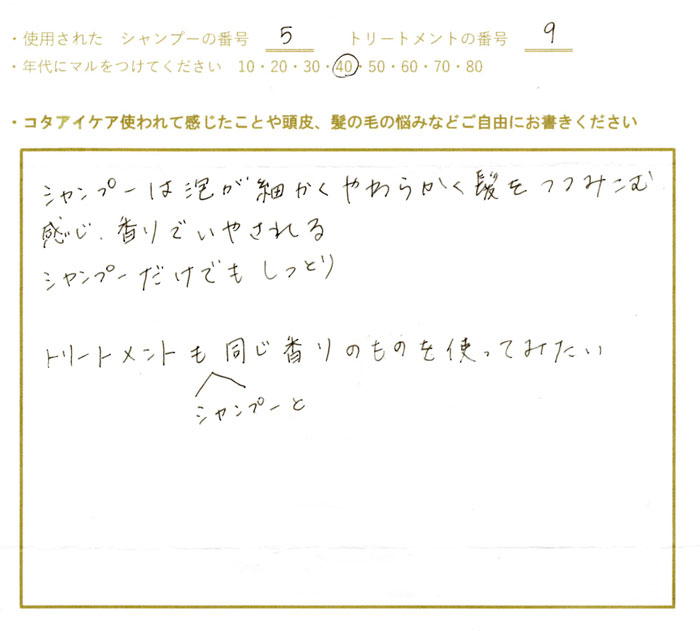 ・使用された シャンプーの番号 5 トリートメントの番号 9
・年代にマルをつけてください 10・20・30・40・50・60・70・80
・コタアイケア使われて感じたことや頭皮、髪の毛の悩みなどご自由にお書きください
シャンプーは泡が細かくやわらかく髪をつつみこむ
感じ、香りでいやされる
シャンプーだけでもしっとり
トリートメントも同じ香りのものを使ってみたい
シャンプーと